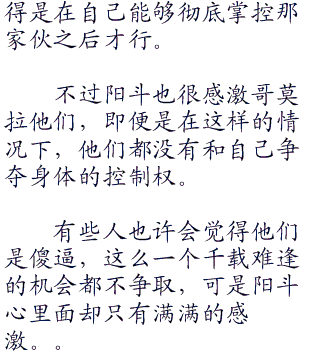 得是在自己能够彻底掌控那
家伙之后才行。
不过阳斗也很感激哥莫
拉他们，即便是在这样的情
况下，他们都没有和自己争
夺身体的控制权。
有些人也许会觉得他们
是傻逼，这么一个千载难逢
的机会都不争取，可是阳斗
心里面却只有满满的感
激。。